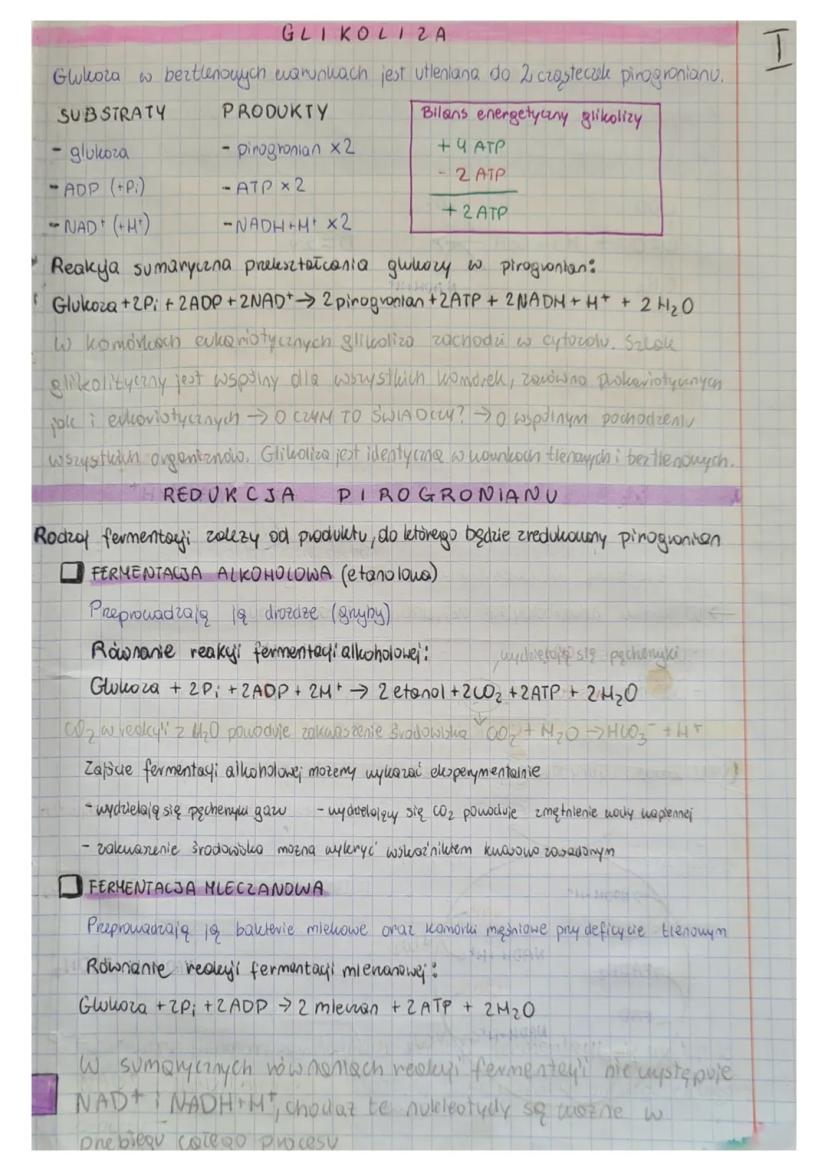 GLIKOLIZA
I
Glukoza w beztlenowych warunkach jest utleniana do 2 cząsteczek pirogronianu.
SUBSTRATY PRODUKTY Bilans energetyczny glikolizy
- glukoza - pirogronian x2 + 4 ATP
- ADP (+Pi) - ATP x2 - 2 ATP
- NAD⁺ (+H⁺) - NADH+H⁺ x2 + 2 ATP
Reakcja sumaryczna przekształcania glukozy w pirogronian:
Glukoza + 2Pi + 2ADP + 2NAD⁺ → 2 pirogronian + 2ATP + 2NADH + H⁺ + 2 H₂O
W komórkach eukariotycznych glikoliza zachodzi w cytozolu. Szlak
glikolityczny jest wspólny dla wszystkich komórek, zarówno prokariotycznych
jak i eukariotycznych → O CZYM TO ŚWIADCZY? → O wspólnym pochodzeniu
wszystkich organizmów. Glikoliza jest identyczna w warunkach tlenowych i beztlenowych.
REDUKCJA PIROGRONIANU
Rodzaj fermentacji zależy od produktu, do którego będzie zredukowany pirogronian
FERMENTACJA ALKOHOLOWA (etanolowa)
Przeprowadzają ją drożdże (grzyby)
Równanie reakcji fermentacji alkoholowej: wydzielają się pęcherzyki
Glukoza + 2Pi + 2ADP + 2H⁺ → 2 etanol + 2CO₂ + 2ATP + 2H₂O
CO₂ w reakcji z H₂O powoduje zakwaszenie środowiska CO₂ + H₂O → HCO₃⁻ + H⁺
Zajście fermentacji alkoholowej możemy wykazać eksperymentalnie
- wydzielają się pęcherzyki gazu - wydzielający się CO₂ powoduje zmętnienie wody wapiennej
- zakwaszenie środowiska można wykryć wskaźnikiem kwasowo zasadowym
FERMENTACJA MLECZANOWA
Przeprowadzają ją bakterie mlekowe oraz komórki mięśniowe przy deficycie tlenowym
Równanie reakcji fermentacji mleczanowej:
Glukoza + 2Pi + 2ADP → 2 mleczan + 2ATP + 2H₂O
W sumarycznych równaniach reakcji fermentacji nie występuje
NAD⁺ i NADH+H⁺, chociaż te nukleotydy są ważne w
przebiegu całego procesu